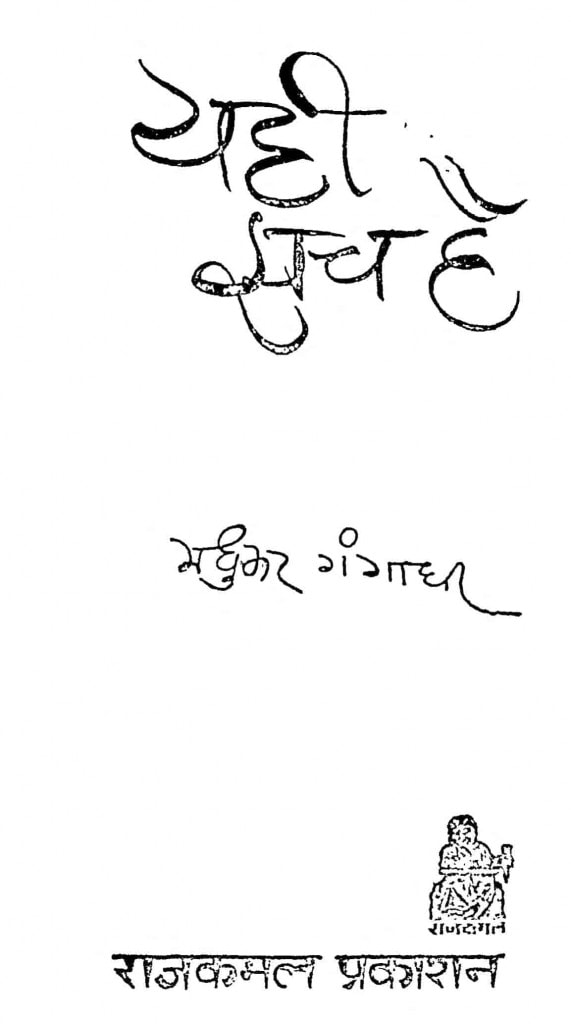 यही
सच है
मधुकर गंगाधर
राजकमल
राजकमल प्रकाशन